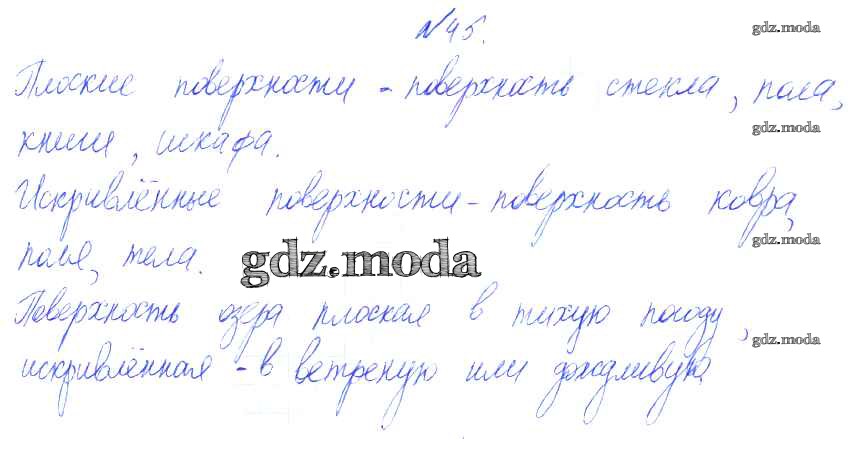 №45.
gdz.moda
Плоские поверхности - поверхность стекла, пола,
gdz.moda
книги, шкафа.
Искривлённые поверхности - поверхность ковра,
gdz.moda
поля, тела.
gdz.moda
Поверхность озера плоская в тихую погоду,
gdz.moda
искривлённая - в ветреную или дождливую.
gdz.moda